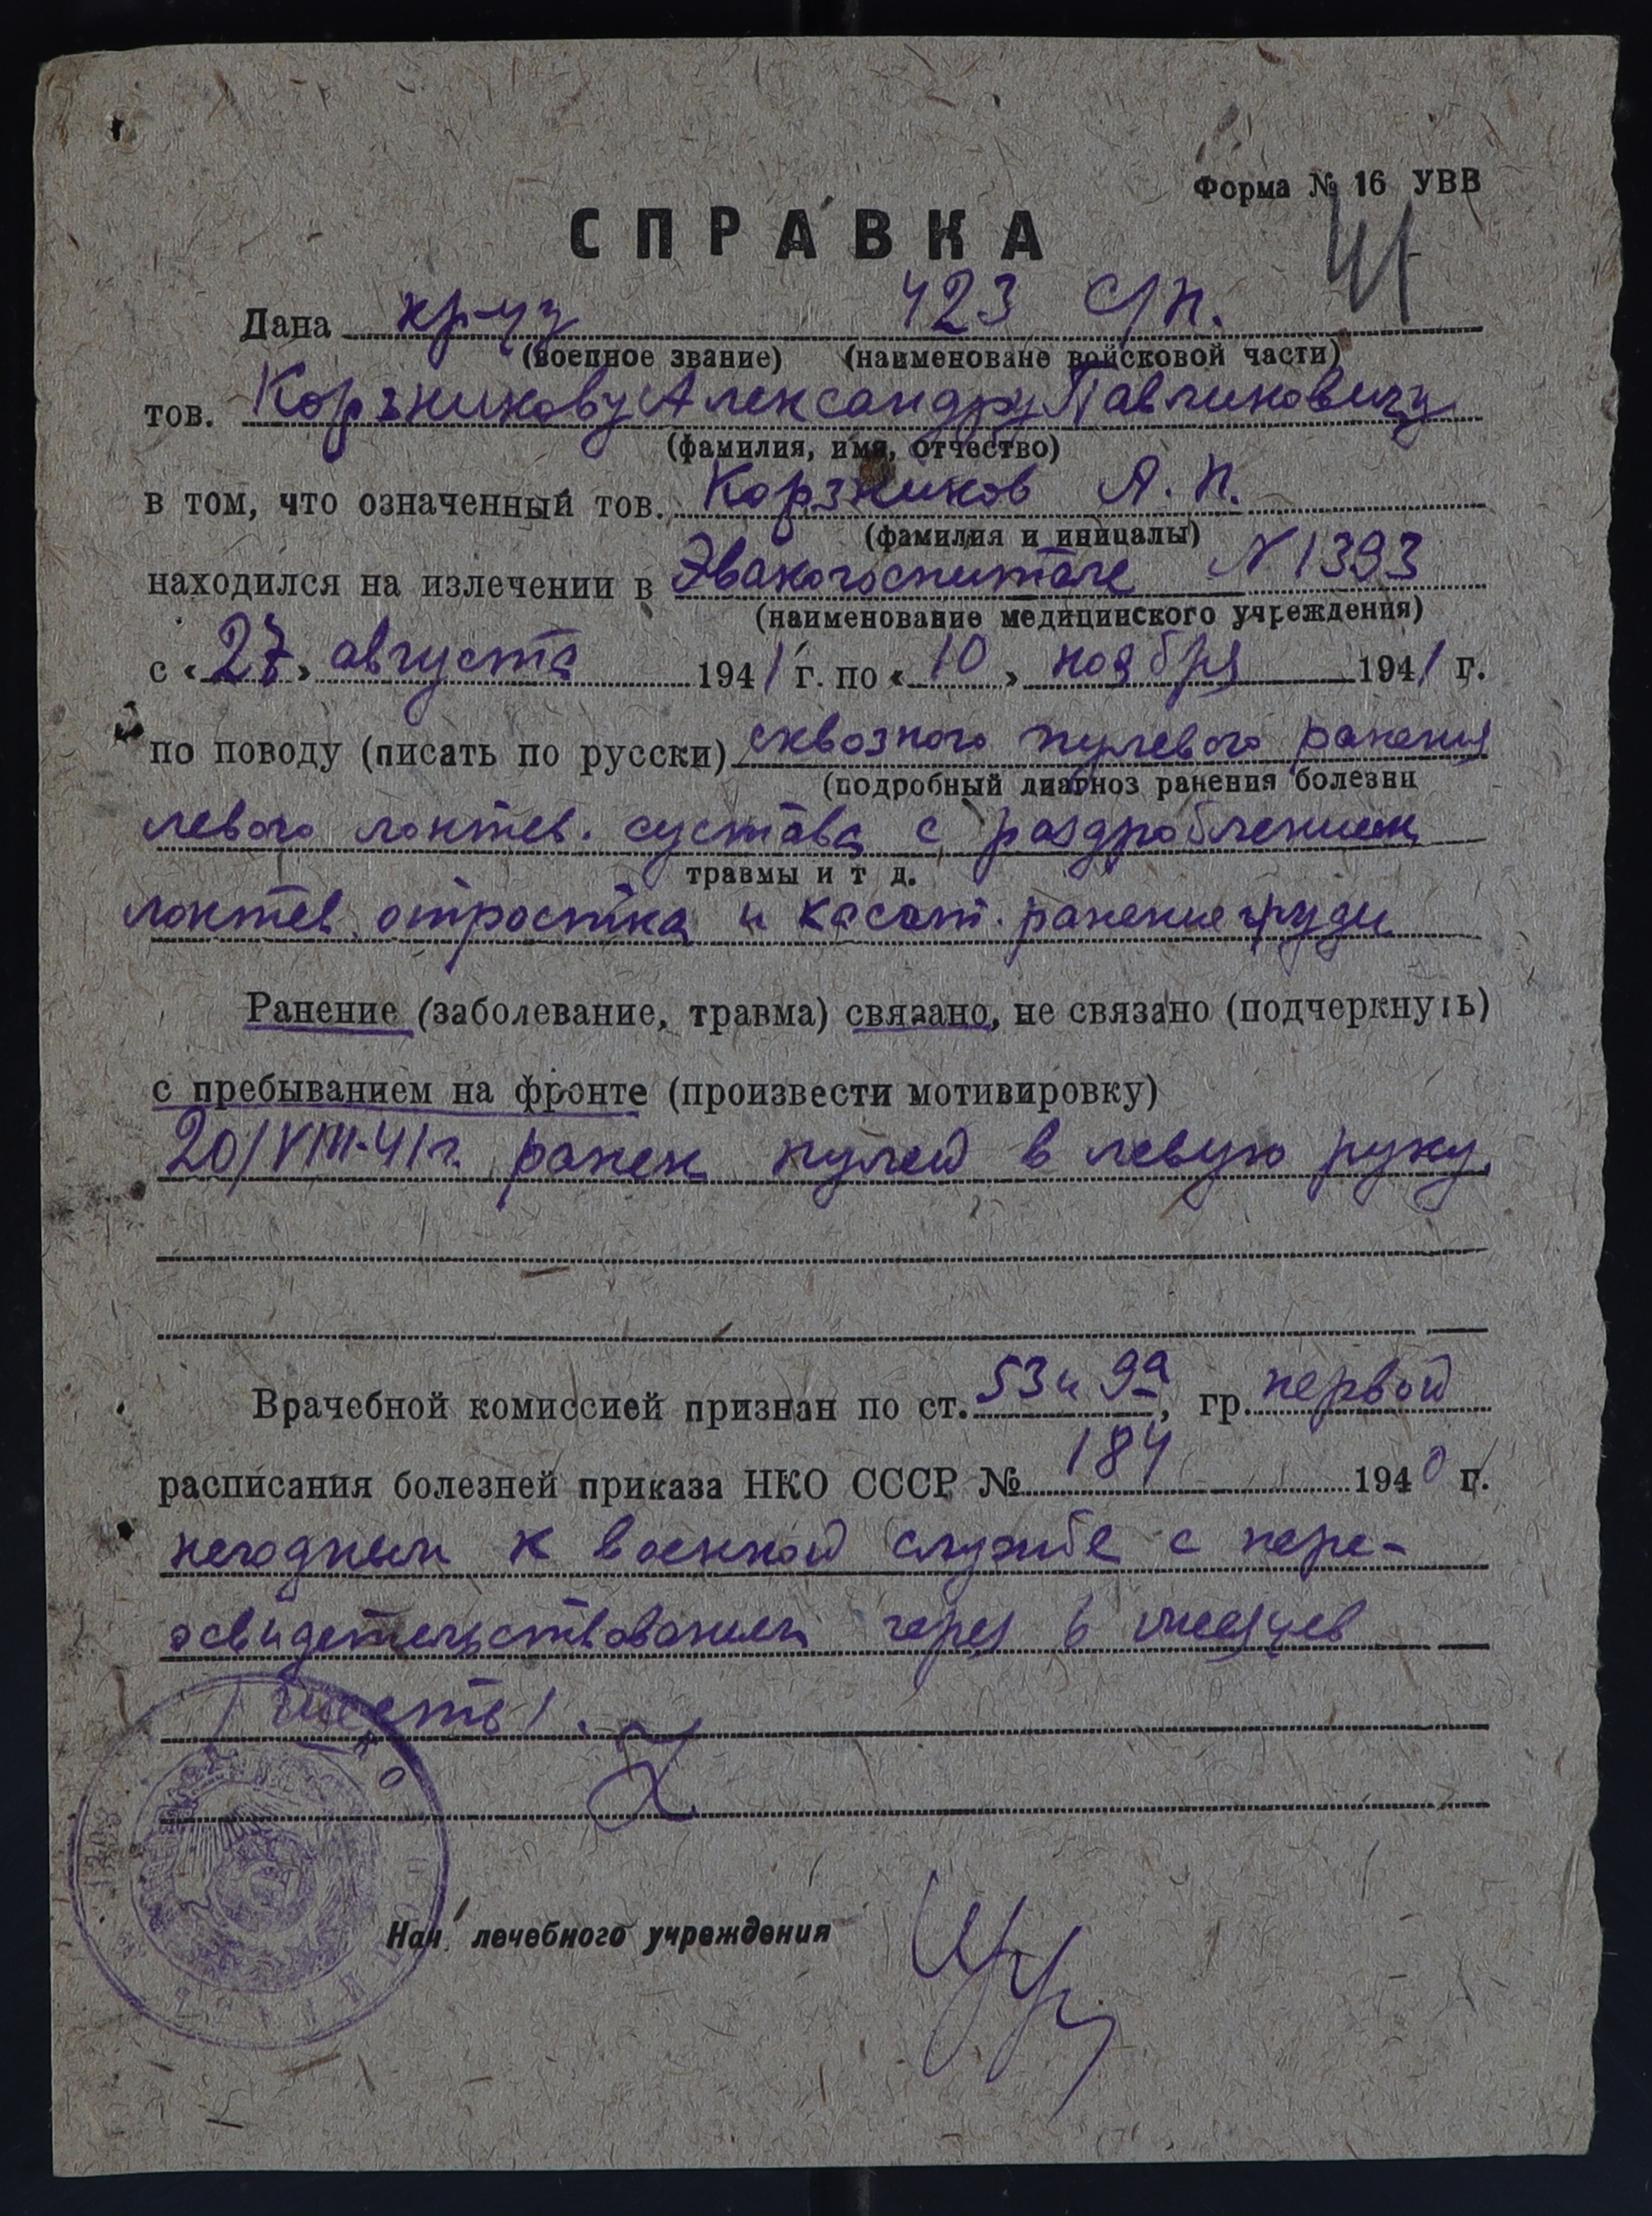 Форма № 16 УВВ
41
СПРАВКА
Дана кр-цу 423 с/п.
(военное звание) (наименоване войсковой части)
тов. Корзникову Александру Павлиновичу
(фамилия, имя, отчество)
в том, что означенный тов. Корзников А. П.
(фамилия и иницалы)
находился на излечении в Эвакогоспитале N 1393
(наименование медицинского учреждения)
с «27» августа 1941 г. по «10» ноября 1941 г.
по поводу (писать по русски) сквозного пулевого ранения
(подробный диагноз ранения болезни
левого локтев. сустава с раздроблением
травмы и т д.
локтев. отростка и касат. ранение груди
Ранение (заболевание, травма) связано, не связано (подчеркнуть)
с пребыванием на фронте (произвести мотивировку)
20/VIII-41г. ранен пулей в левую руку.
Врачебной комиссией признан по ст. 53 и 9а, гр. первой
расписания болезней приказа НКО СССР № 184 1940 г.
негодным к военной службе с пере-
освидетельствованием через 6 месяцев
/шесть/.
Нач. лечебного учреждения